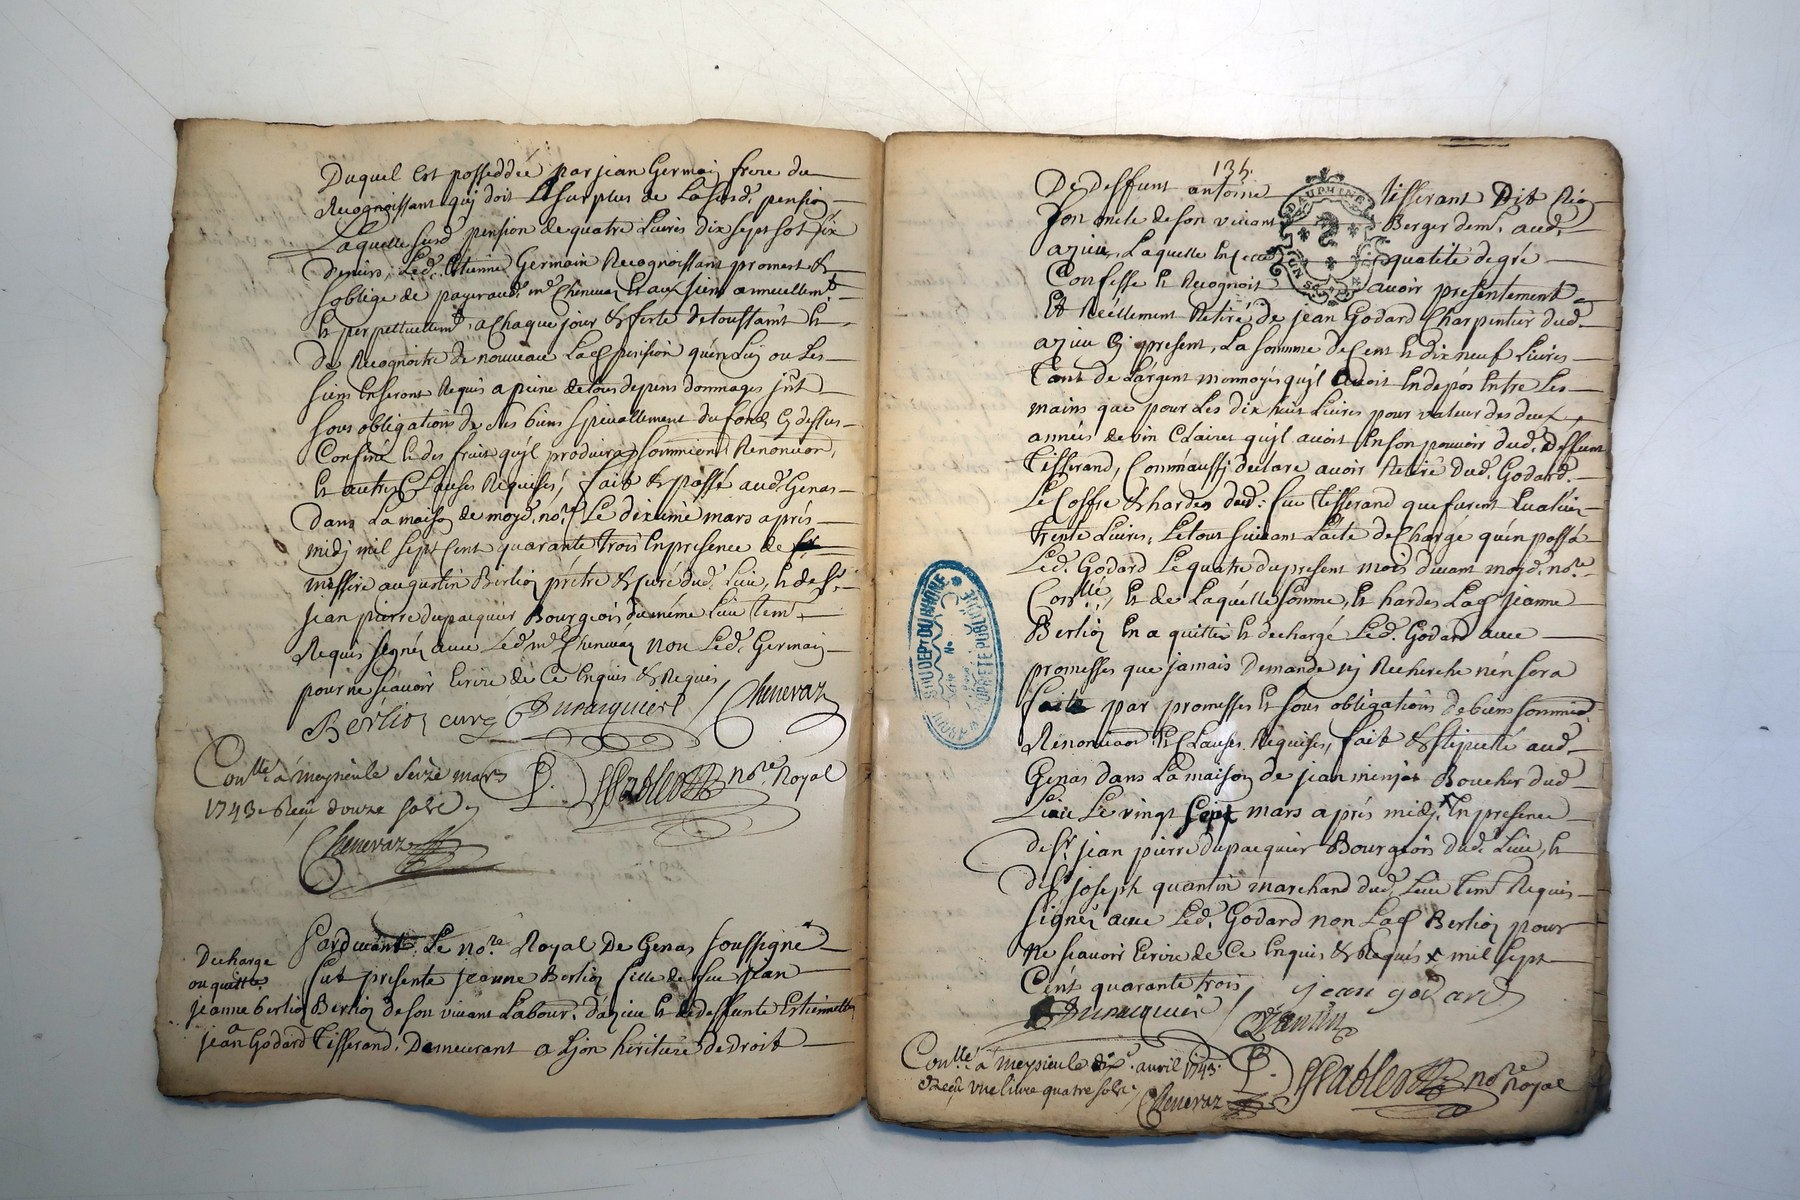 Duquel est posseddée par jean Germain frere du
Recognoissant quj doit le surplus de la susd. pension
Laquelle susd pension de quatre Livres dix sept sols six
deniers, Led. Etienne Germain Recognoissant promest &
soblige de payer aud. me Chenevaz et aux siens annuellemt
et perpetuellemt, a chaque jour & feste de toussaint et
de Recognoitre de nouveau Lad pension quand Luy ou Les
siens en seront Requis a peine de tous depens dommages
sous obligations de ses biens specialement du fonds cy dessus
Confiné et des fruit qujl produira, Renonciaon,
et autres Clauses Requises, fait & passé aud. Genas
dans La maison de moyd. nore Le dixieme mars aprés
midj mil sept Cent quarante trois en presence de
messire augustin Berlion prétre & curé dud. Lieu, et de sr.
Jean pierre dupacquier Bourgeois du méme Lieu tem.
Requis signéz avec Led. me Chenevaz non Led. Germain
pour ne sçavoir Ecrire de Ce Enquis & Requis
Berlion curé Dupacquier Chenevaz
P. nore Royal
Conllé a meysieule Seize mars
1743. Reçu douze sols
Chenevaz
Pardevant Le nore Royal De Genas soussigné
Decharge
ou quitte
jeanne berlion
a
jean Godard
fut presente jeanne Berlion fille de feu jean
Berlion de son vivant Labour. d'azieu et de deffunte Estiennette
Tisserand, Demeurant a Lion heritiere de droit
135.
De Deffunt antoine Tisserant Dit
son oncle de son vivant Berger dem. aud.
azieu, Laquelle en cette qualité de gré
Confesse et Recognoit avoir presentement
Et Réellement Retiré de jean Godard Charpentier dud.
azieu Cy present, La somme de Cent et dix neuf Livres
tant de L'argent monnoyés qujl avoit en depos Entre Les
mains que pour Les dix huit Livres pour valeur des deux
années de vin Clairet qujl avoit en son pouvoir dud. deffunt
Tisserand, Comm'aussj declare avoir Retiré dud. Godard
Le Coffre & hardes dud: feu Tisserand que furent Evaluéz
trente Livres, Le tout suivant L'acte de Charge qu'en passa
Led. Godard Le quatre du present mois devant moyd. nore
Conllé, et de Laquelle somme, et hardes Lad jeanne
Berlion en a quitté et dechargé Led. Godard avec
promesses que jamais Demande nj Recherche n'en sera
faite par promesses et sous obligations de biens
Renonciaon et Clauses Requises, fait & stipulé aud
Genas dans La maison de jean Boucher dud
Lieu Le vingt sept mars aprés midj, En presence
de sr. jean pierre dupacquier Bourgeois dud. Lieu, et
de sr joseph quantin marchand dud. Lieu temt Requis
signéz avec Led. Godard non Lad Berlion pour
ne scavoir Ecrire de Ce Enquis & Requis x mil sept
Cent quarante trois jean godard
Dupacquier Quantin
Conllé a meysieule avril 1743. P. nore Royal
Reçu une livre quatre sols Chenevaz
DAUPHINE